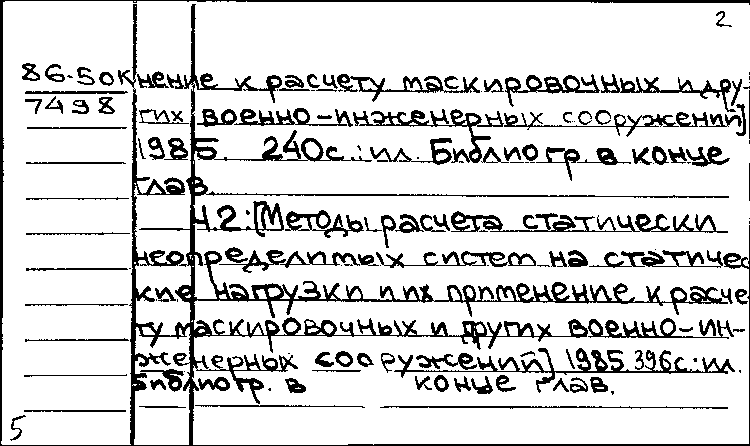 2
86-50к нение к расчету маскировочных и дру-
7498 гих военно-инженерных сооружений]
1985. 240с.:ил. Библиогр. в конце
глав.
Ч.2:[Методы расчета статически
неопределимых систем на статичес
кие нагрузки и их применение к расче
ту маскировочных и других военно-ин-
женерных сооружений] 1985. 396с.:ил.
Библиогр. в конце глав.
5